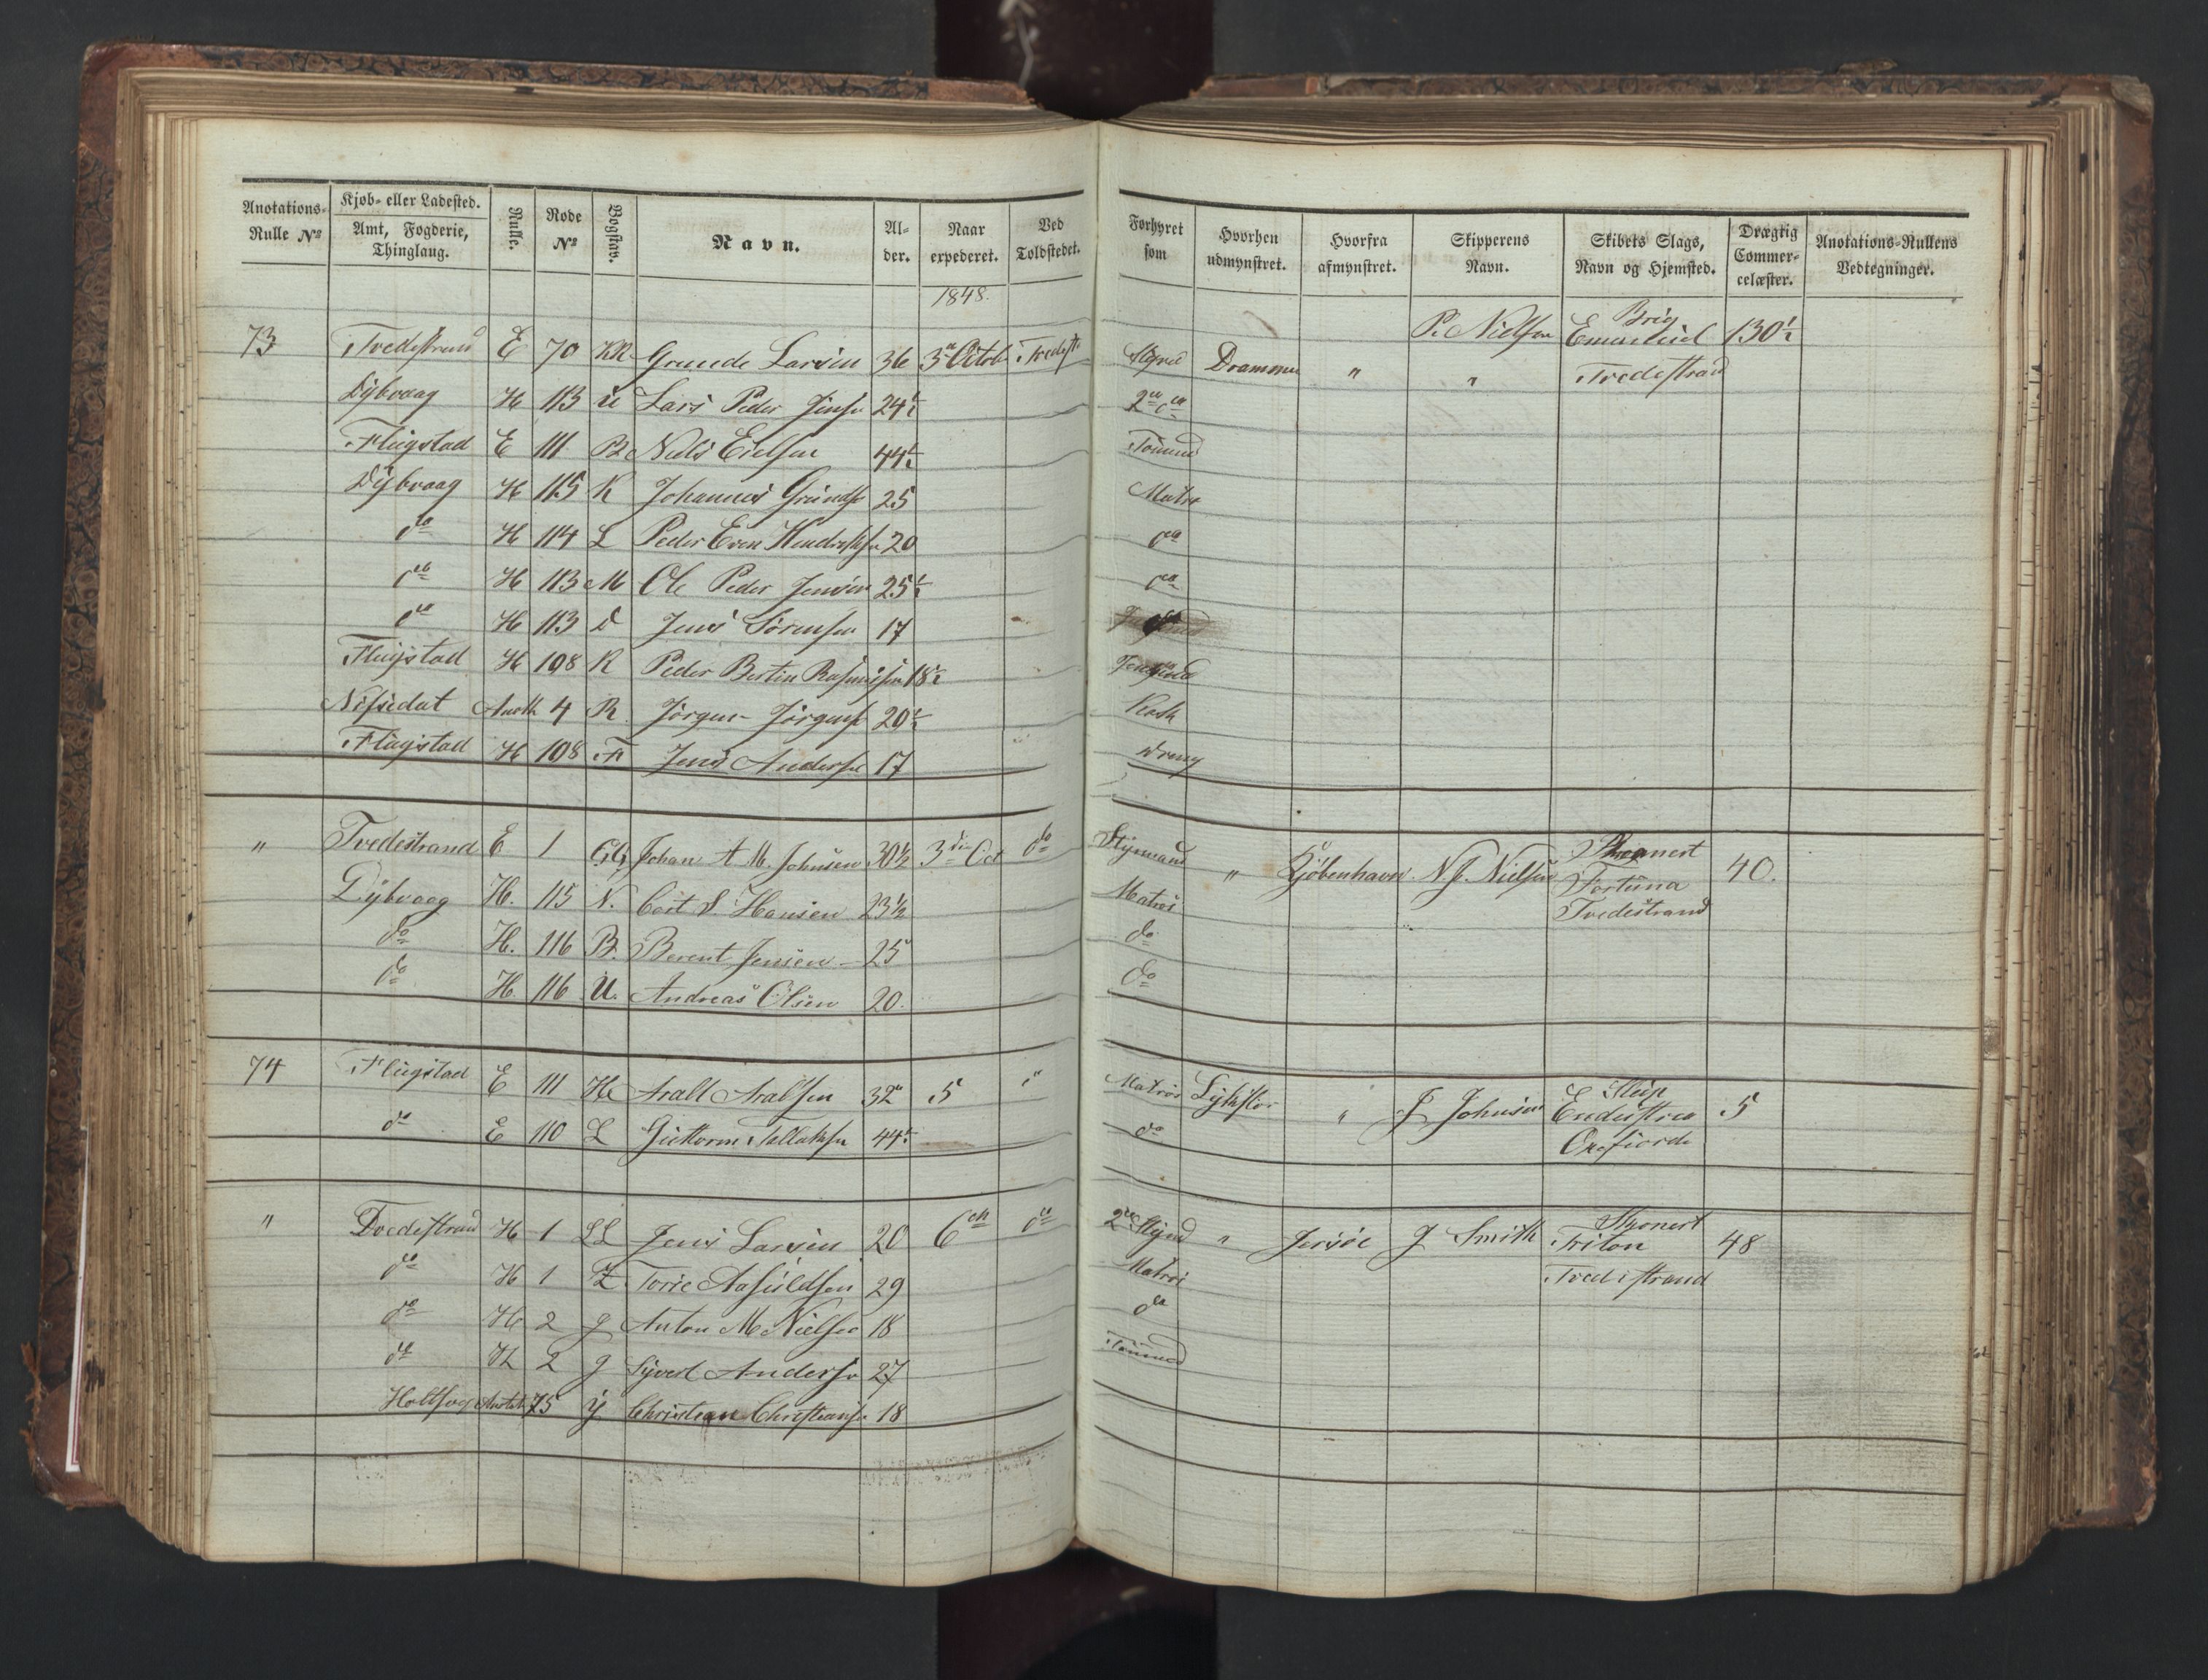 Anotations-Rulle № | Kjøb- eller Ladested. Amt, Fogderie, Thinglaug. | Rulle. | Rode № | Bogstav. | Navn. | Alder. | Naar expederet. | Ved Toldstedet. | Forhyret som | Hvorhen udmynstret. | Hvorfra afmynstret. | Skipperens Navn. | Skibets Slags, Navn og Hjemsted. | Drægtig Commercelæster. | Anotations-Rullens Vedtegninger.
1848.
73 Tvedestrand E 70 KK Grunde Larsen 36 3 Octob Tvedest Styrmd Drammen " " P. Nielsen Brig Emanuel Tvedestrand 130½
Dybvaag H 113 U Lars Peder Jensen 24½ 2en do
Flügstad E 111 B Niels Eielsen 44½ Tömmd
Dybvaag H 115 K Johannes Grundes 25 Matro
do H 114 L Peder Even Hendriksen 20 do
do H 113 M Ole Peder Jensen 25½ do
do H 113 D Jens Sörensen 17
Flügstad H 108 K Peder Bertin Rasmusen 18½
Nissedal Anoth 4 R Jörgen Jörgens 20½ Kok
Flügstad H 108 F Jens Andersen 17 Dreng
" Tvedestrand E 1 GG Johan A. M. Johnsen 30½ 3die Oct do Styrmand " Kjöbenhavn N. J. Nielsen Skonert Fortuna Tvedestrand 40.
Dybvaag H. 115 N. S. Hansen 23½ Matros
do H. 116 B. Berent Jensen 25 do
do H. 116 U. Andreas Olsen 20. do
74 Flügstad E 111 H Aralt Aralsen 32 5 " Matros " J Johnsen Slup 5
do E 110 L Guttorm Tallaksen 44½ do
" Tvedestrand H 1 LL Jens Larsen 20 6 do 2en Stymd " J Smith Skonert Triton Tvedestrand 48
do H 1 Z Torie 29 Matros
do H 2 g Anton M Nielsen 18 do
do H 2 g Syvert Anders 27 Tömmd
Anoth 75 Y Christian Christians 18